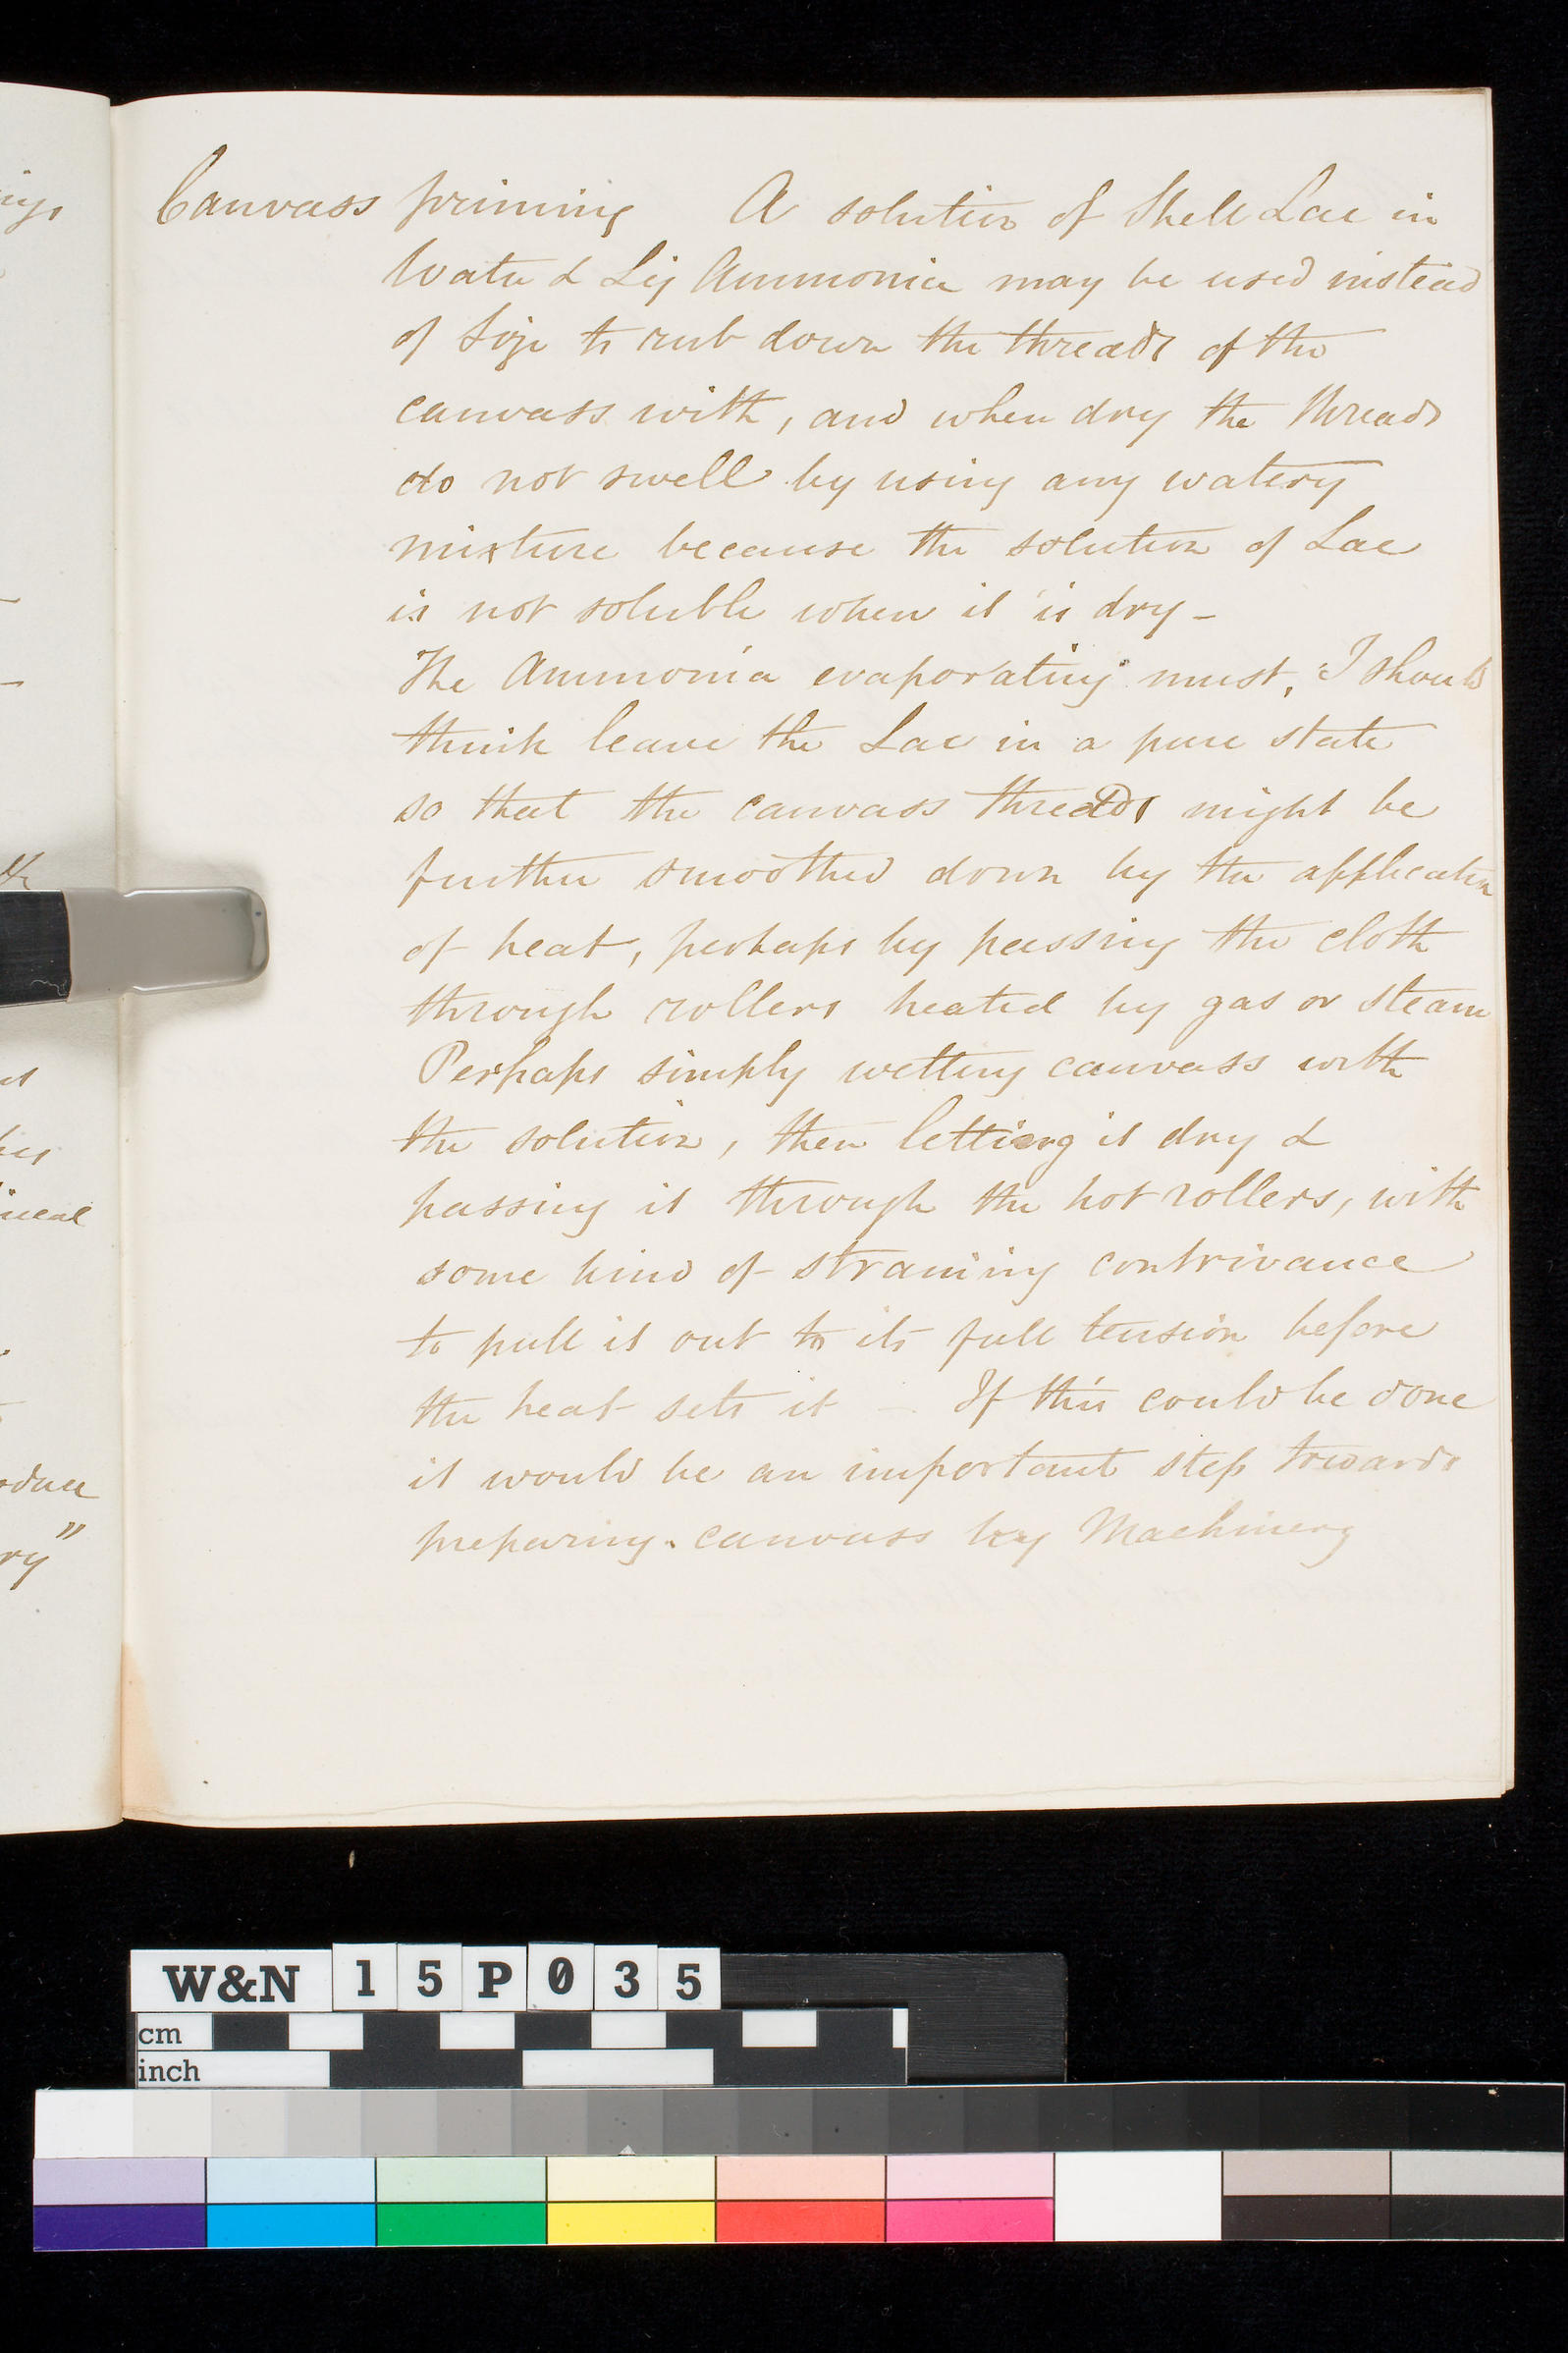 Canvass priming A solution of Shell Lac in
Water & Liq Ammonia may be used instead
of Size to rub down the threads of the
canvass with, and when dry the threads
do not swell by using any watery
mixture because the solution of Lac
is not soluble when it is dry -
The Ammonia evaporating must, I should
think leave the Lac in a pure state
so that the canvass threads might be
further smoothed down by the application
of heat, perhaps by passing the cloth
through rollers heated by gas or steam
Perhaps simply wetting canvass with
the solution, then letting it dry &
passing it through the hot rollers, with
some kind of straining contrivance
to pull it out to its full tension before
the heat sets it - If this could be done
it would be an important step towards
preparing canvass by Machinery
W&N 15P035
cm
inch